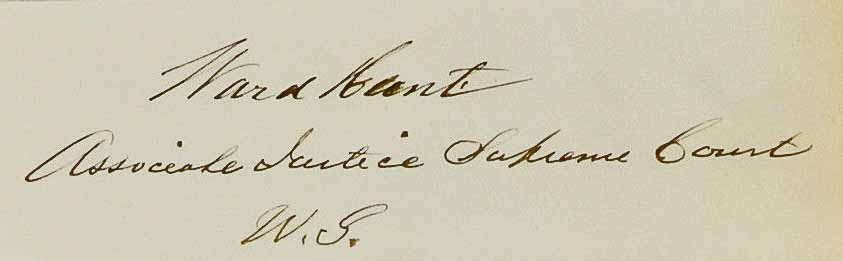 Ward Hunt
Associate Justice Supreme Court
U.S.